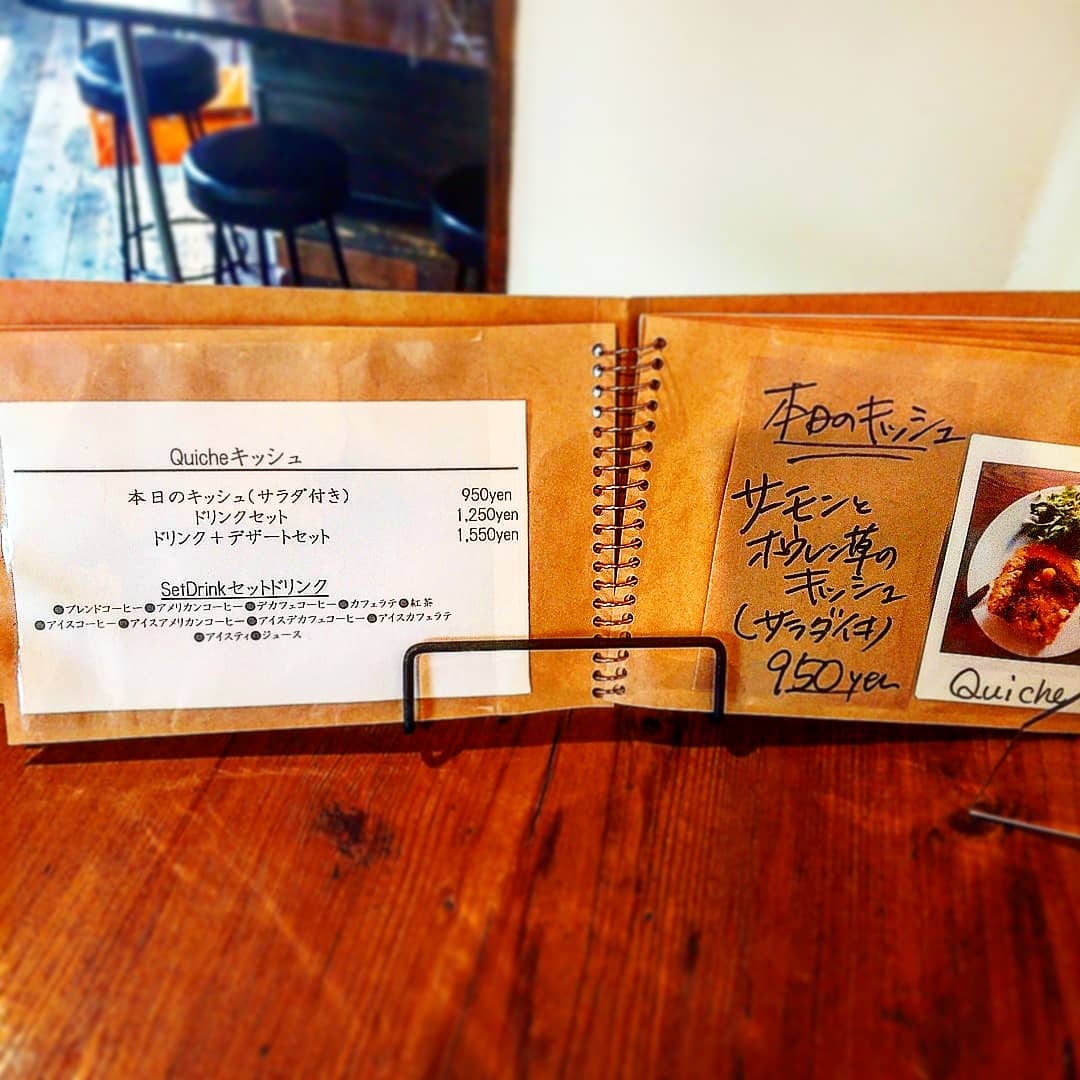 Quicheキッシュ
本日のキッシュ(サラダ付き) 950yen
ドリンクセット 1,250yen
ドリンク＋デザートセット 1,550yen
SetDrinkセットドリンク
●ブレンドコーヒー●アメリカンコーヒー●デカフェコーヒー●カフェラテ●紅茶
●アイスコーヒー●アイスアメリカンコーヒー●アイスデカフェコーヒー●アイスカフェラテ
●アイスティ●ジュース
本日のキッシュ
サーモンと
ホウレン草の
キッシュ
(サラダ付き)
950yen
Quiche